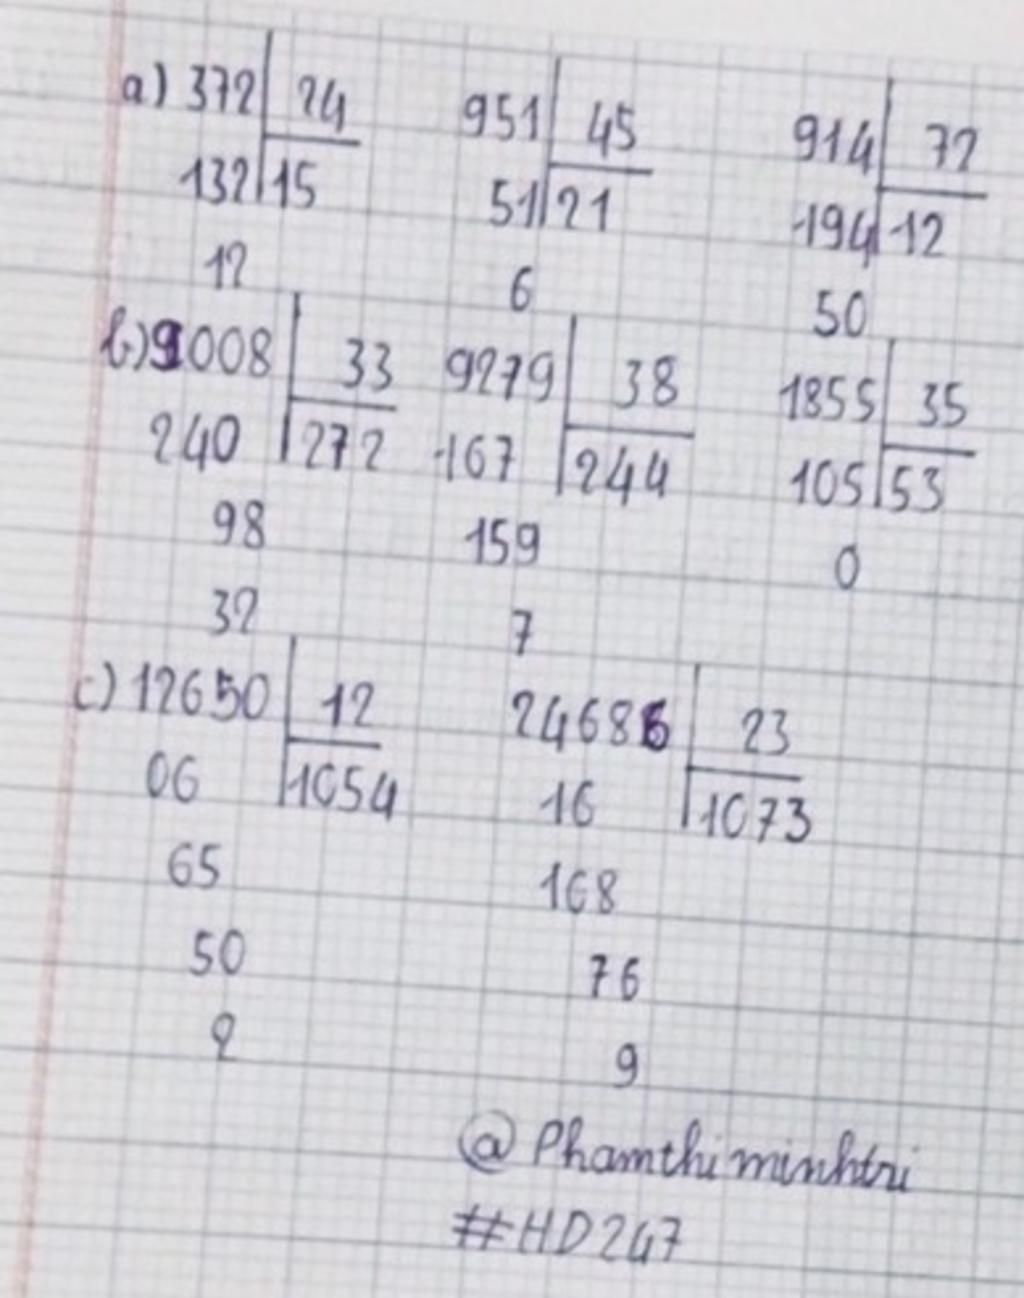 a) 372 24 951 45 914 72
132 15 51 21 194 12
12 6 50
b) 9008 33 9279 38 1855 35
240 272 167 244 105 53
98 159 0
32 7
c) 12650 12 24686 23
06 1054 16 1073
65 168
50 76
2 9
@Phamthiminhtri
#HD247